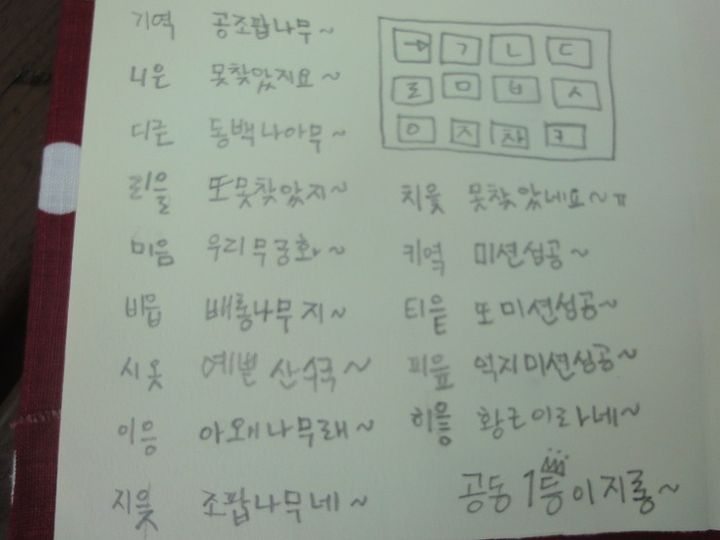 기역 공조팝나무~
니은 못찾았지요~
디귿 동백나아무~
리을 또못찾았지~
미음 우리무궁화~
비읍 배롱나무지~
시옷 예쁜 산수국~
이응 아왜나무래~
지읒 조팝나무네~
→ ㄱ ㄴ ㄷ
ㄹ ㅁ ㅂ ㅅ
ㅇ ㅈ ㅊ ㅋ
치읓 못찾았네요~ㅠ
키역 미션성공~
티읕 또미션성공~
피읖 억지미션성공~
히읗 황근이라네~
공동 1등이지롱~